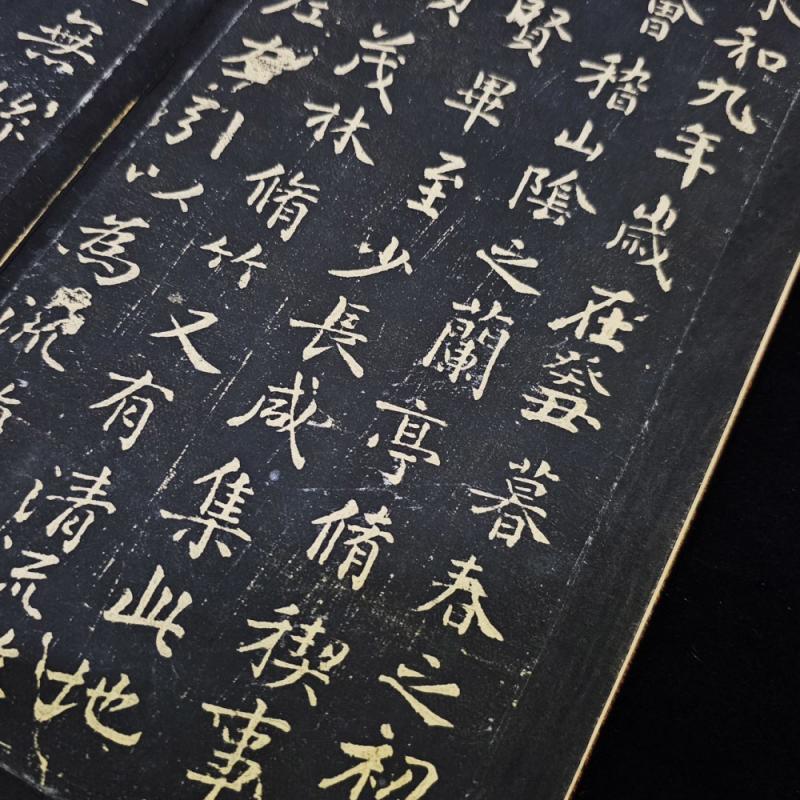 永和九年歲在癸丑暮春之初
會稽山陰之蘭亭脩禊事
賢畢至少長咸集此地
茂林脩竹又有清流
左右引以為流
無絲